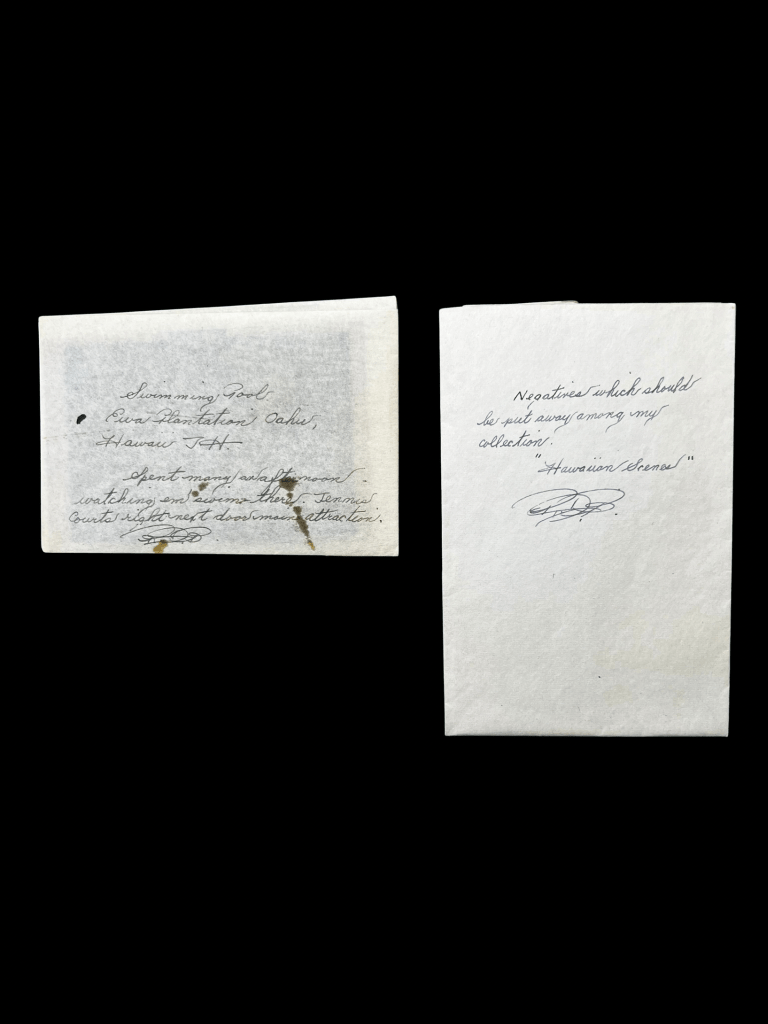 Swimming Pool
Ewa Plantation Oahu,
Hawaii T.H.
Spent many an afternoon
watching em swim there. Tennis
Courts right next door main attraction.
Negatives which should
be put away among my
collection.
"Hawaiian Scenes"